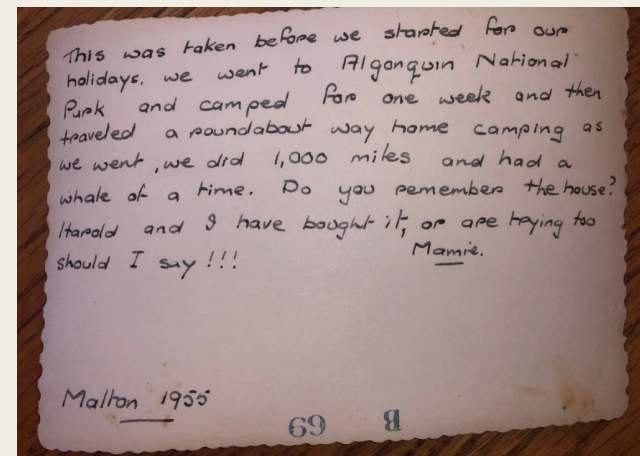 This was taken before we started for our
holidays, we went to Algonquin National
Park and camped for one week and then
traveled a roundabout way home camping as
we went, we did 1,000 miles and had a
whale of a time. Do you remember the house?
Harold and I have bought it, or are trying too
should I say !!! Mamie.
Malton 1955
69 B